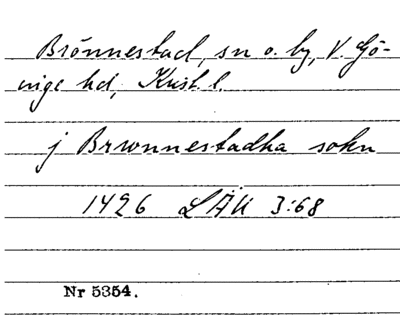 Brönnestad, sn o. by, V. Gö-
inge hd, Krist. l.
j Brwnnestadha sokn
1426 LÄU 3:68
Nr 5354.